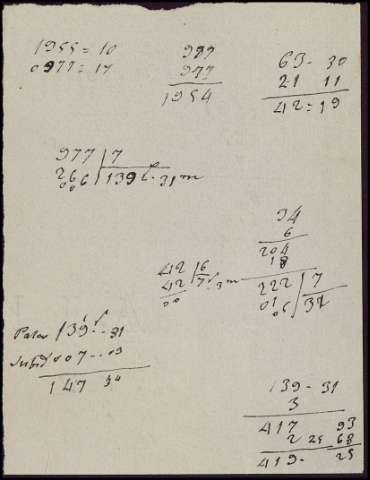 1955 = 10
0977 = 17
977
977
1954
63 - 30
21 11
42 = 19
977 | 7
266 | 139 - 31 m
006
34
6
204
18
222 | 7
016 | 31
42 | 6
42 | 7 - 3 m
00
139 - 31
007 - 03
147 34
139 - 31
3
417 93
2 25 68
419 - 25